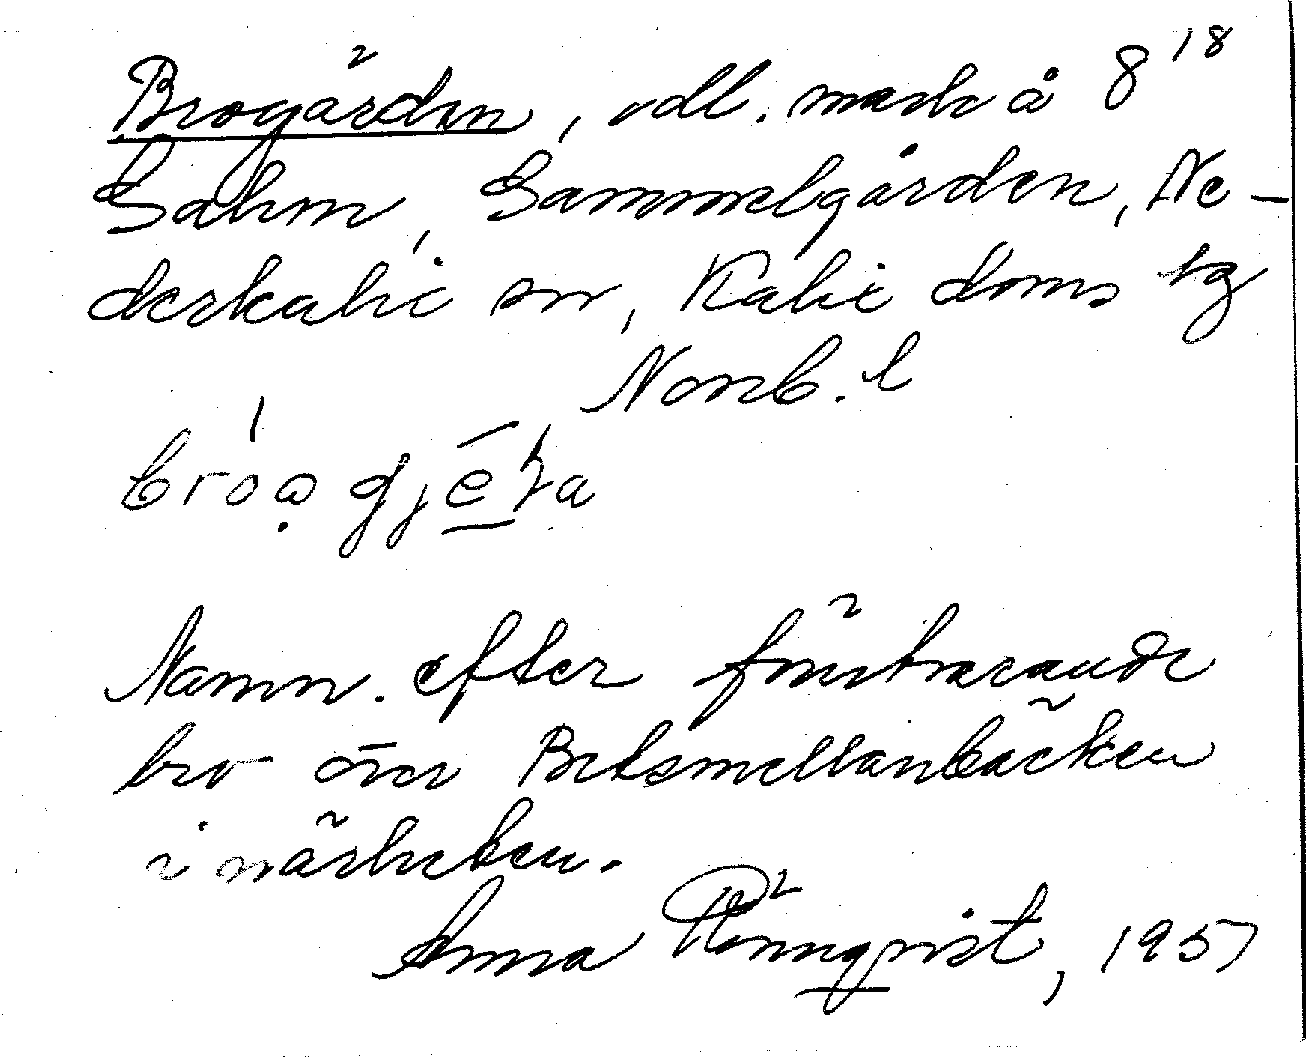 Brogärdan, odl. mark å 8¹⁸
Gammelgården, Ne-
derkalix sn, Kalix doms tg
Norrb. l
Namn. efter förutvarande
bro över Betsmellanbäcken
i närheten.
Anna Rönnqvist, 1957